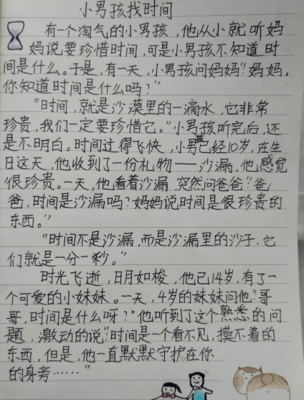 小男孩找时间
有一个淘气的小男孩，他从小就听妈
妈说要珍惜时间，可是小男孩不知道时
间是什么。于是，有一天，小男孩问妈妈“妈妈，
你知道时间是什么吗？”
“时间，就是沙漠里的一滴水，它非常
珍贵，我们一定要珍惜它。”小男孩听完后，还
是不明白。时间过得飞快，小男已经10岁，在生
日这天，他收到了一份礼物——沙漏，他感觉
很珍贵。一天，他看着沙漏，突然问爸爸：“爸
爸，时间是沙漏吗？妈妈说时间是很珍贵的
东西。”
“时间不是沙漏，而是沙漏里的沙子，它
们就是一分一秒。”
时光飞逝，日月如梭，他已14岁，有了一
个可爱的小妹妹。一天，4岁的妹妹问他：“哥
哥，时间是什么呀？”他听到了这个熟悉的问
题，激动的说：“时间是一个看不见，摸不着的
东西，但是，他一直默默守护在你
的身旁……”